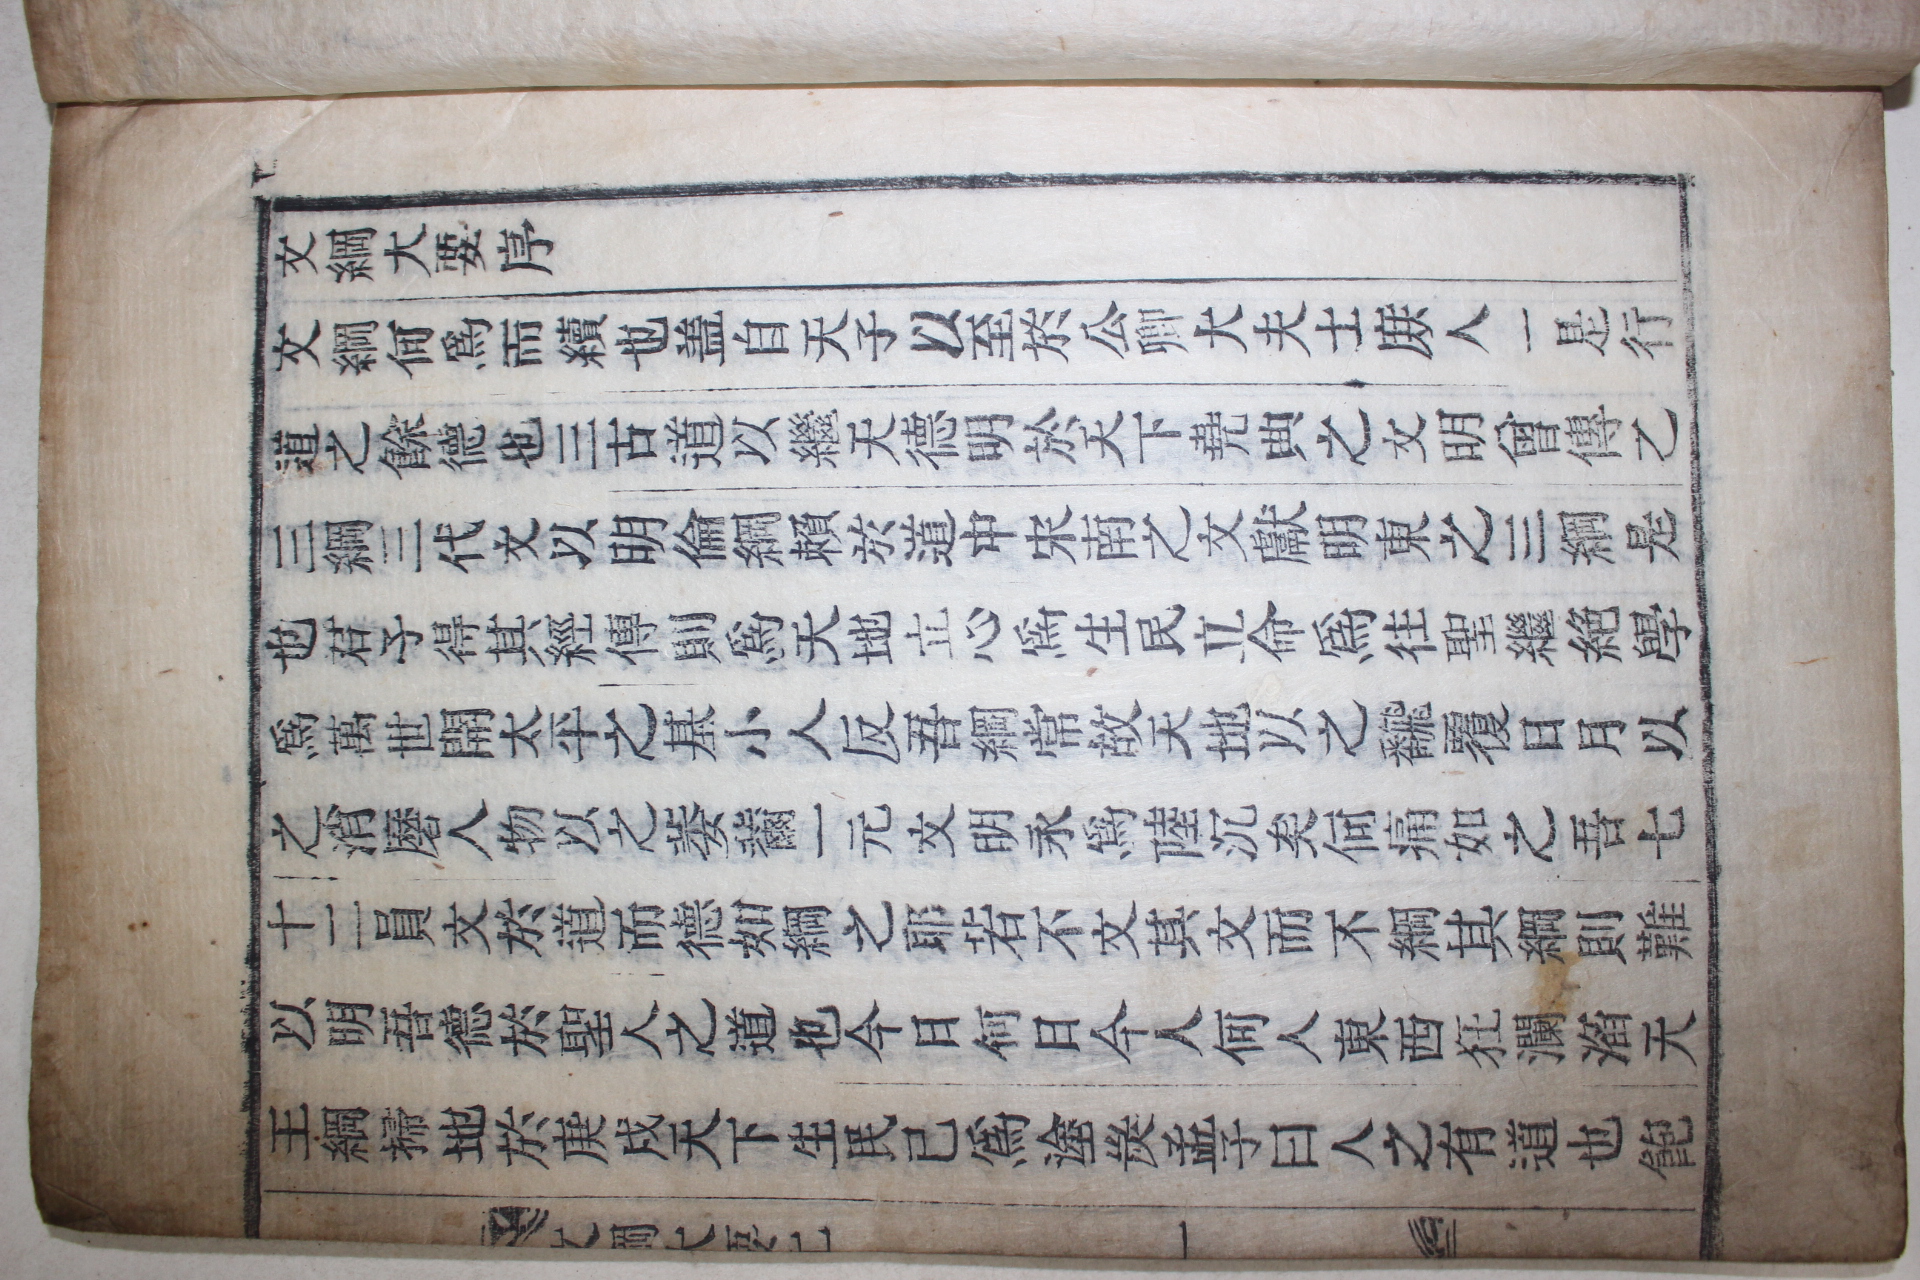 文綱大要序
文綱何爲而續也盖自天子以至於公卿大夫士庶人一是行
道之餘德也三古道以繼天德明於天下堯典之文明曾傳之
三綱三代文以明倫綱賴於道中宋南之文獻明東之三綱是
也君子得其經傳則爲天地立心爲生民立命爲往聖繼絶學
爲萬世開太平之基小人反吾綱常故天地以之飜覆日月以
之消磨人物以之萎薾一元文明永爲陸沉矣何痛如之吾七
十二員文於道而德如綱之耶若不文其文而不綱其綱則難
以明吾德於聖人之道也今日何日今人何人東西狂瀾滔天
王綱掃地於庚戌天下生民已爲塗炭孟子曰人之有道也飽
文綱大要上
一